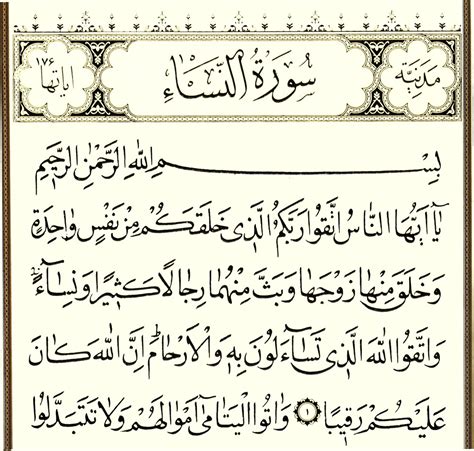 مَدَنِيَّة سُورَةُ النِّسَاءِ اياتها ١٧۶
بِسْمِ اللّٰهِ الرَّحْمٰنِ الرَّحٖيمِ
يَٓا اَيُّهَا النَّاسُ اتَّقُوا رَبَّكُمُ الَّذٖى خَلَقَكُمْ مِنْ نَفْسٍ وَاحِدَةٍ
وَخَلَقَ مِنْهَا زَوْجَهَا وَبَثَّ مِنْهُمَا رِجَالًا كَثٖيرًا وَنِسَٓاءً
وَاتَّقُوا اللّٰهَ الَّذٖى تَسَٓاءَلُونَ بِهٖ وَالْاَرْحَامَ اِنَّ اللّٰهَ كَانَ
عَلَيْكُمْ رَقٖيبًا ١ وَاٰتُوا الْيَتَامٰٓى اَمْوَالَهُمْ وَلَا تَتَبَدَّلُوا